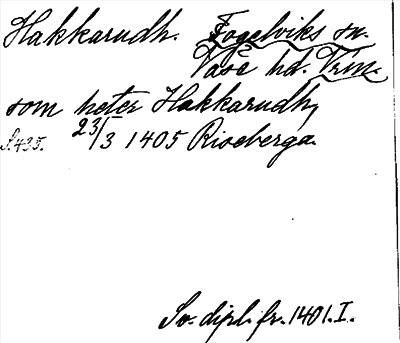 Hakkarudh. Fogelviks sn.
Väse hd. Vrm.
som heter Hakkarudh,
S.435. 23/3 1405 Riseberga.
Sv. dipl. fr. 1401. I.